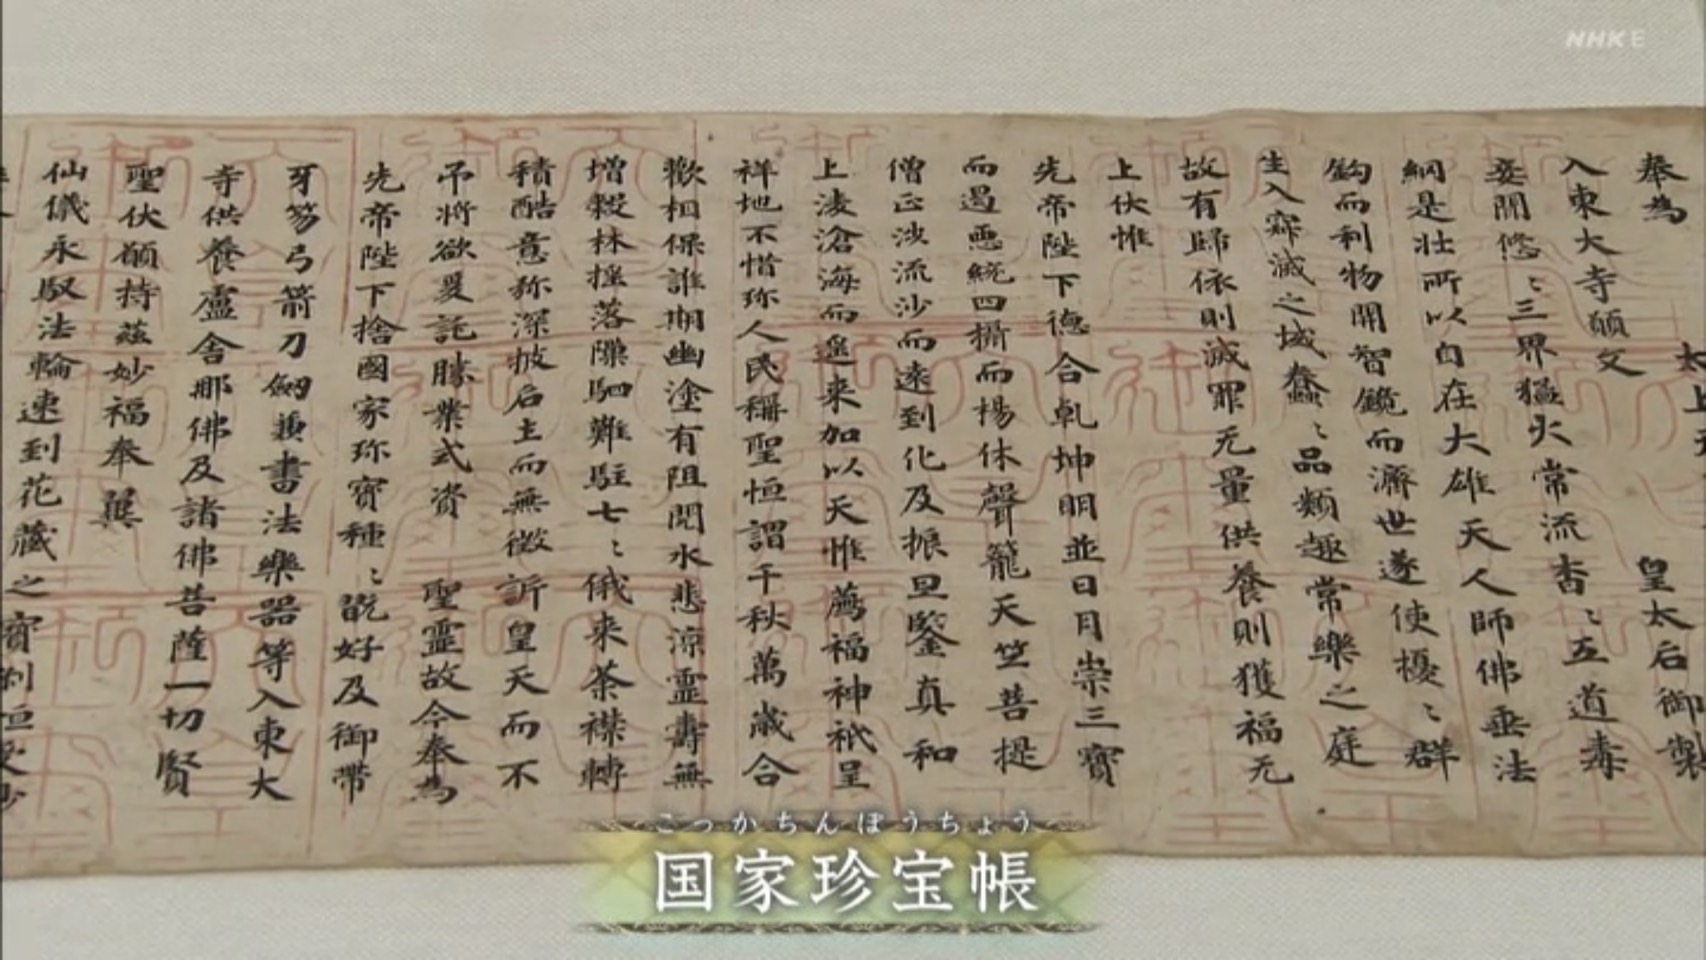 奉為 太上天
入東大寺願文 皇太后御製
妾聞悠〻三界猛火常流杳〻五道毒
網是壯所以自在大雄天人師佛垂法
鈎而利物開智鏡而濟世遂使擾〻群
生入寂滅之域蠢〻品類趣常樂之庭
故有歸依則滅罪无量供養則獲福无
上伏惟
先帝陛下德合乾坤明並日月崇三寶
而遏惡統四攝而揚休聲籠天竺菩提
僧正涉流沙而遠到化及振旦鑒真和
上凌滄海而遙来加以天惟薦福神祇呈
祥地不惜珎人民稱聖恒謂千秋萬歲合
歡相保誰期幽塗有阻閱水悲凉靈壽無
增穀林搖落隟駟難駐七〻俄来荼襟轉
積酷意弥深披后土而無徵訴皇天而不
吊將欲爰託勝業式資 聖靈故今奉為
先帝陛下捨國家珎寶種〻翫好及御帶
牙笏弓箭刀劒兼書法樂器等入東大
寺供養盧舍那佛及諸佛菩薩一切賢
聖伏願持茲妙福奉翼
仙儀永馭法輪速到花藏之寶刹恒受妙
こっかちんぽうちょう
国家珍宝帳
NHK E